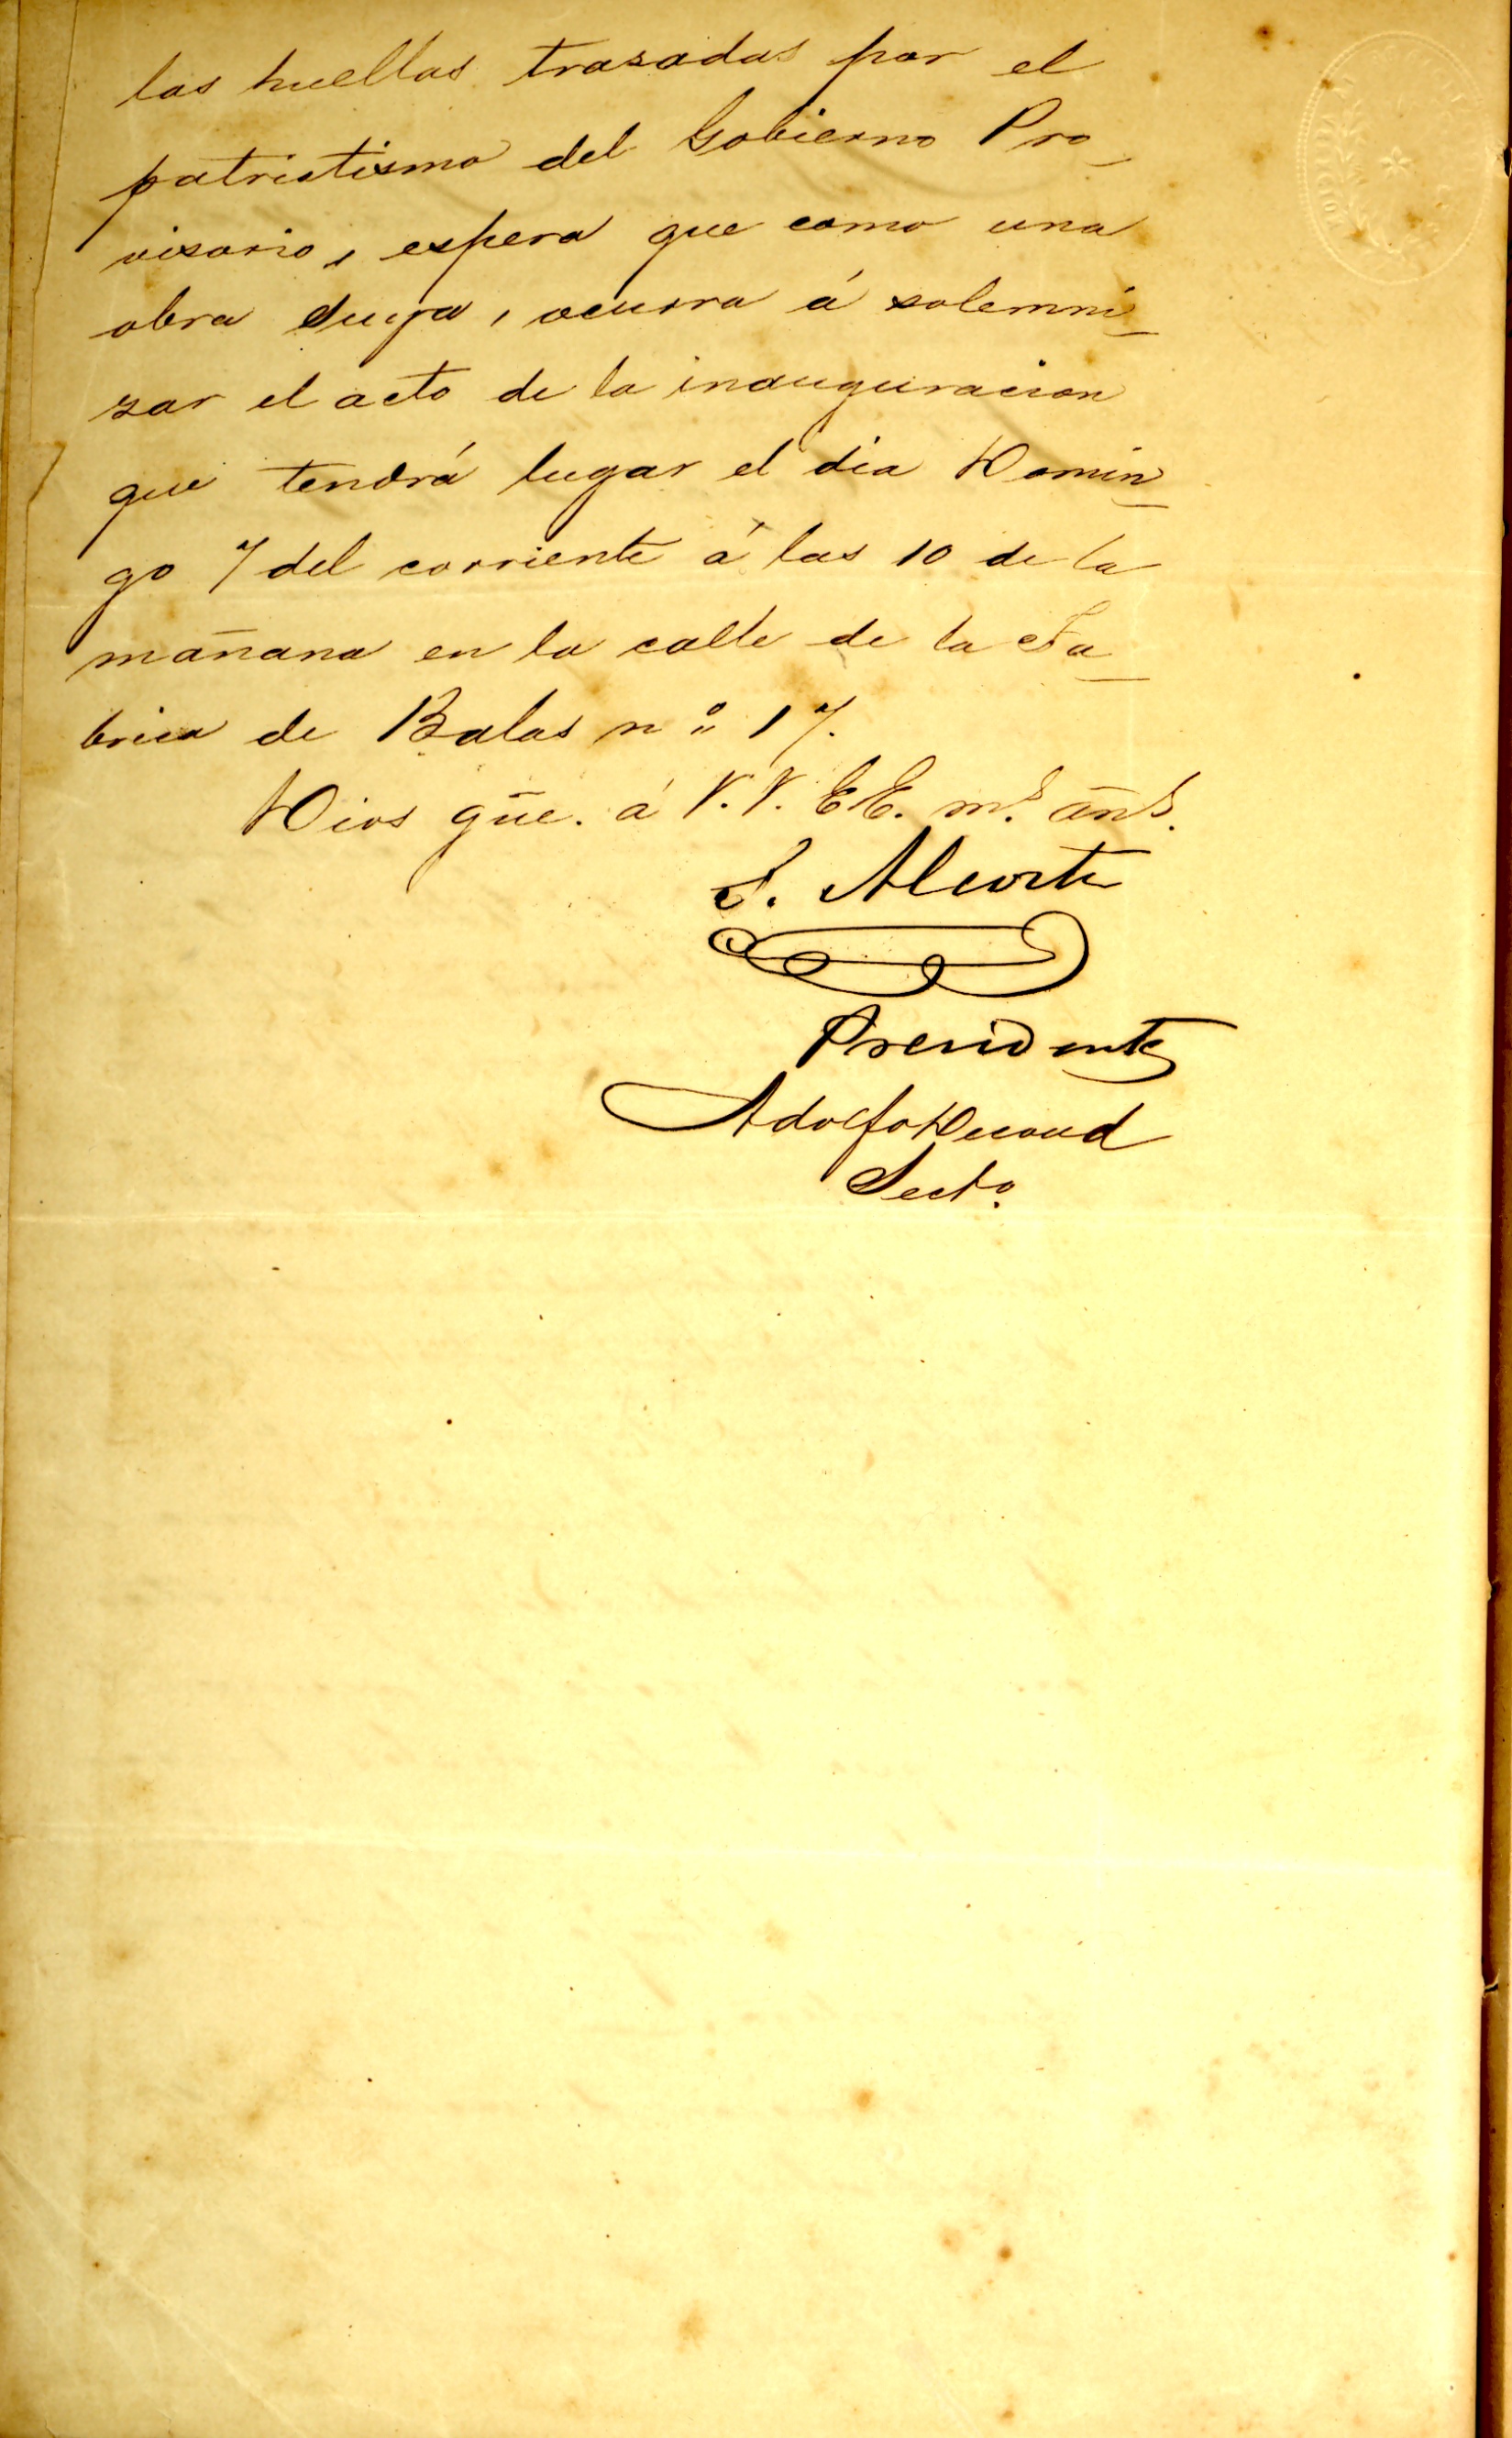 las huellas trasadas por el
patriotismo del Gobierno Pro_
visorio, espera que como una
obra suya, ocurra á solemni_
zar el acto de la inauguracion
que tendrá lugar el dia Domin_
go 7 del corriente á las 10 de la
mañana en la calle de la Fa_
brica de Balas nº 17.
Dios gūe. á V.V. EE. mˢ. añˢ.
S. Alcorta
Presidente
Adolfo Decoud
Sectº.